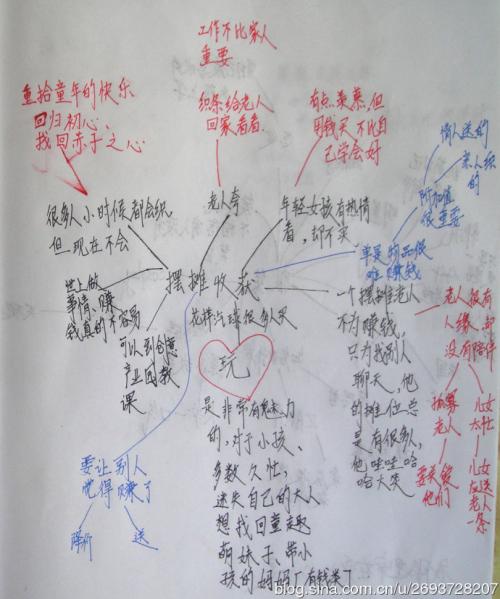 工作不比家人
重要
重拾童年的快乐
回归初心、
找回赤子之心
织条给老人
回家看看
有点羡慕,但
用钱买不比自
己学会好
情人送的
亲人织
的
附加值
很重要
很多人小时候都会织
但现在不会
老人夸
年轻女孩有热情
者,却不买
单是物品很
难赚钱
世上做
事情、赚
钱真的不容易
摆摊收获
花样汽球很多人买
可以到创意
产业园教
课
一个摆摊老人
不为赚钱,
只为找别人
聊天,他
的摊位总
是有很多人,
他哇哇哈
哈大笑
老人没有
人缘,却
没有陪伴
儿女
太忙
儿女
应送
老人
一条
招募
老人
要卖给
他们
玩
是非常有魅力
的,对于小孩、
多数久忙,
迷失自己的大人
想找回童趣
萌妹子、带小
孩的妈妈
要让别人
觉得赚了
降价
送
blog.sina.com.cn/u/2693728207